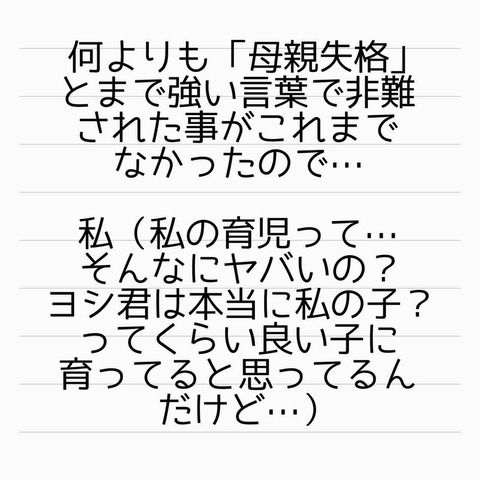 何よりも「母親失格」
とまで強い言葉で非難
された事がこれまで
なかったので…
私（私の育児って…
そんなにヤバいの？
ヨシ君は本当に私の子？
ってくらい良い子に
育ってると思ってるん
だけど…）